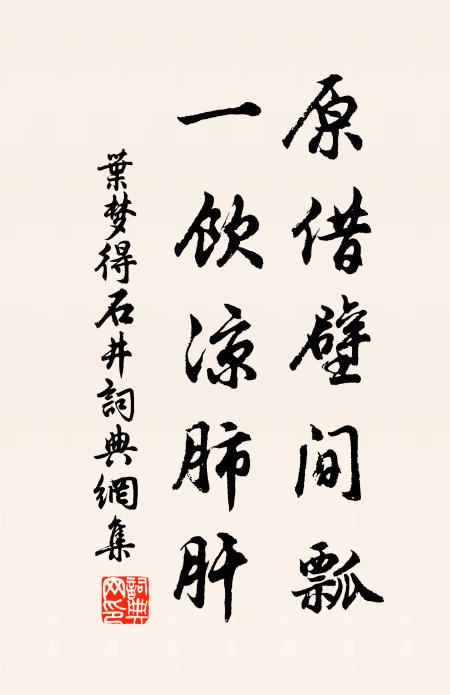 原借壁间瓢
一饮凉肺肝
葉梦得石井詞典網集
詞典網印